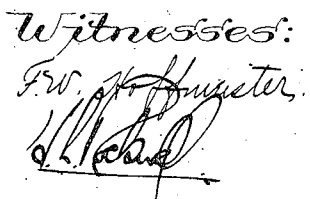 Witnesses:
F.W. Hoffmeister.